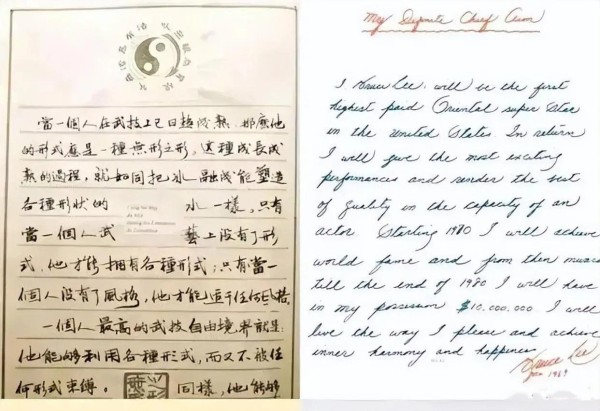 當一個人在武技上已日趨成熟,那麼他
的形式應是一種無形之形,這種成長成
熟的過程,就如同把冰融成能塑造
各種形狀的 水一樣,只有
當一個人武 藝上沒有了形
式,他才能擁有各種形式;只有當一
個人沒有了風格,他才能适于任何風格.
一個人最高的武技自由境界就是:
他能夠利用各種形式,而又不被任
何形式束縛。 同樣,他能夠
My Definite Chief Aim
I, Bruce Lee, will be the first
highest paid Oriental super Star
in the United States. In return
I will give the most exciting
performances and render the best
of quality in the capacity of an
actor. Starting 1970 I will achieve
world fame and from then onward
till the end of 1980 I will have
in my possession $10,000,000. I will
live the way I please and achieve
inner harmony and happiness.
Bruce Lee
Jan. 1969